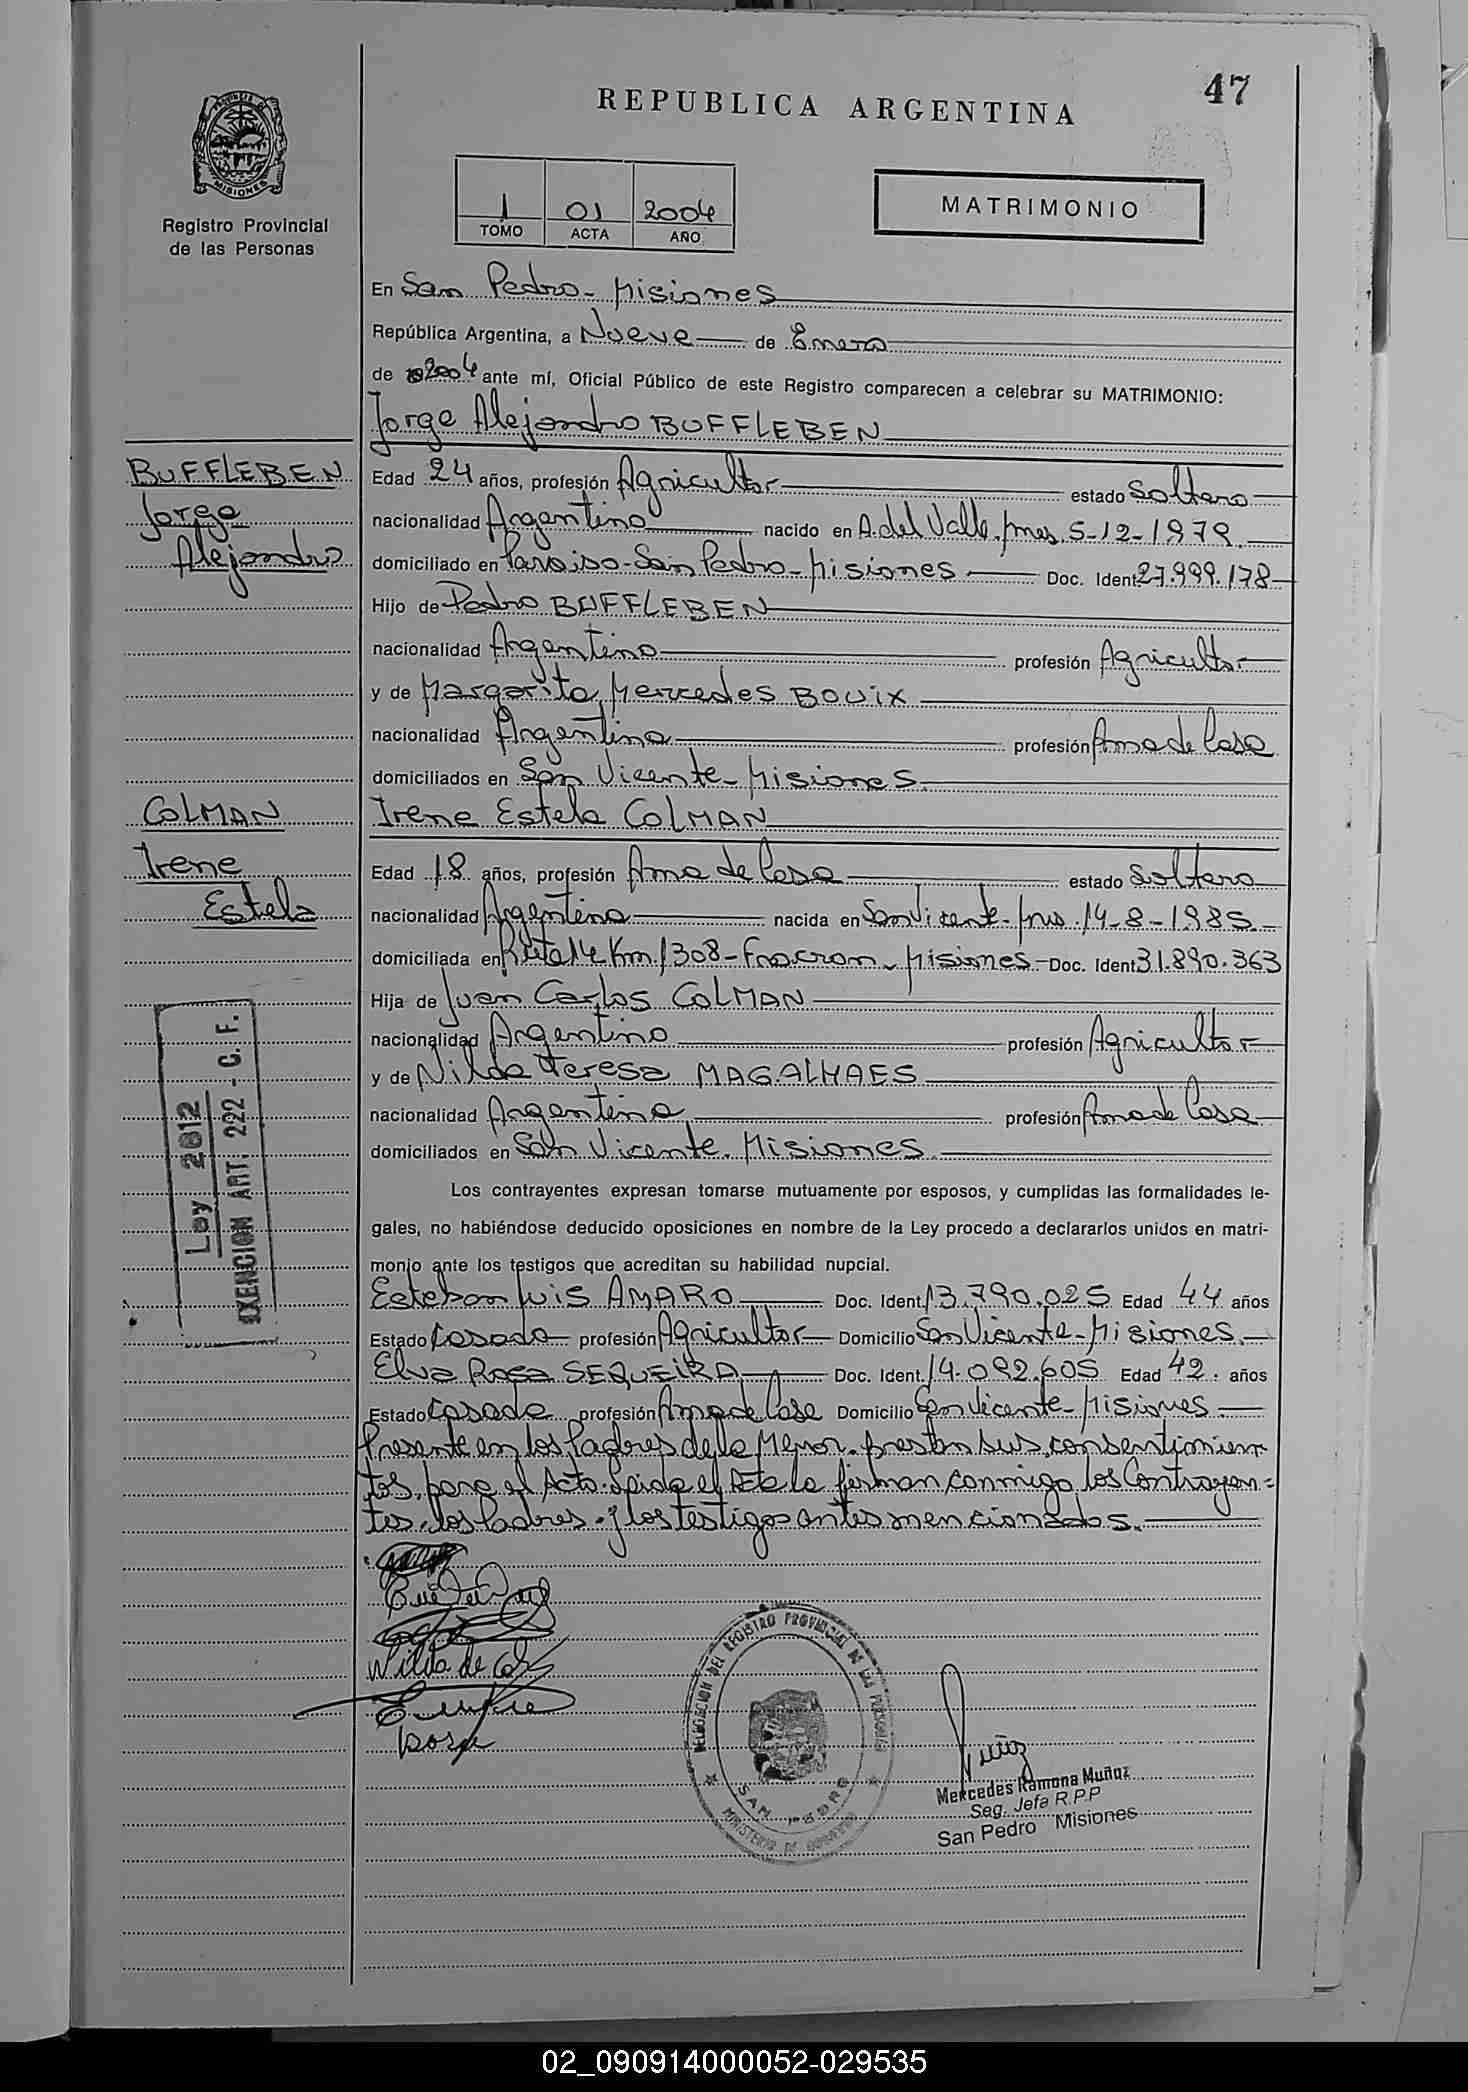 47
REPUBLICA ARGENTINA
PROVINCIA DE
MISIONES
Registro Provincial
de las Personas
1 01 2004
TOMO ACTA AÑO
MATRIMONIO
En San Pedro - Misiones
República Argentina, a Nueve de Enero
de 2004 ante mí, Oficial Público de este Registro comparecen a celebrar su MATRIMONIO:
Jorge Alejandro BUFFLEBEN
BUFFLEBEN
Jorge
Alejandro
Edad 24 años, profesión Agricultor estado Soltero
nacionalidad Argentino nacido en A. del Valle. mnes 5-12-1979
domiciliado en Paraiso - San Pedro - Misiones Doc. Ident 27.999.178
Hijo de Pedro BUFFLEBEN
nacionalidad Argentino profesión Agricultor
y de Margarita Mercedes BOUIX
nacionalidad Argentina profesión Ama de Casa
domiciliados en San Vicente - Misiones
COLMAN
Irene
Estela
Irene Estela COLMAN
Edad 18 años, profesión Ama de Casa estado Soltera
nacionalidad Argentina nacida en San Vicente - mns 14-8-1985
domiciliada en Ruta 14 Km 1308 - Fracran - Misiones - Doc. Ident 31.890.363
Hija de Juan Carlos COLMAN
nacionalidad Argentino profesión Agricultor
y de Nilda Teresa MAGALHAES
nacionalidad Argentina profesión Ama de Casa
domiciliados en San Vicente. Misiones
Ley 2812
EXENCION ART. 222 - C. F.
Los contrayentes expresan tomarse mutuamente por esposos, y cumplidas las formalidades le-
gales, no habiéndose deducido oposiciones en nombre de la Ley procedo a declararlos unidos en matri-
monio ante los testigos que acreditan su habilidad nupcial.
Esteban Luis AMARO Doc. Ident. 13.790.025 Edad 44 años
Estado Casado profesión Agricultor Domicilio San Vicente - Misiones
Elva Rosa SEQUEIRA Doc. Ident. 14.092.605 Edad 42 años
Estado Casada profesión Ama de Casa Domicilio San Vicente - Misiones
Presente en los Padres de la Menor. prestan sus consentimien
tos para el Acto. Leida el Acta la firman conmigo los Contrayen=
tes. los Padres. y los testigos antes mencionados.
Nilda de
Rosa
DELEGACION DEL REGISTRO PROVINCIAL DE LAS PERSONAS
SAN PEDRO
MINISTERIO DE GOBIERNO
Muñoz
Mercedes Ramona Muñoz
Seg. Jefa R.P.P
San Pedro Misiones
02_090914000052-029535